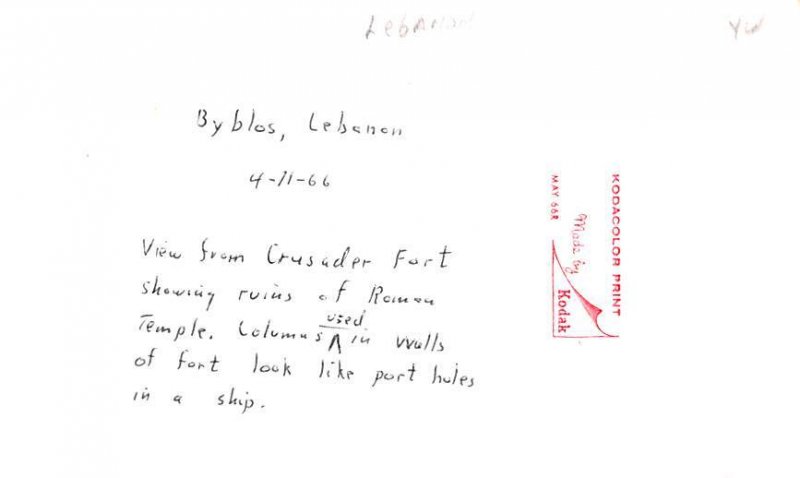 Lebanon
YW
Byblos, Lebanon
4-11-66
View from Crusader Fort
showing ruins of Roman
Temple. Columns used in walls
of fort look like port holes
in a ship.
KODACOLOR PRINT
Made by
Kodak
MAY 66R